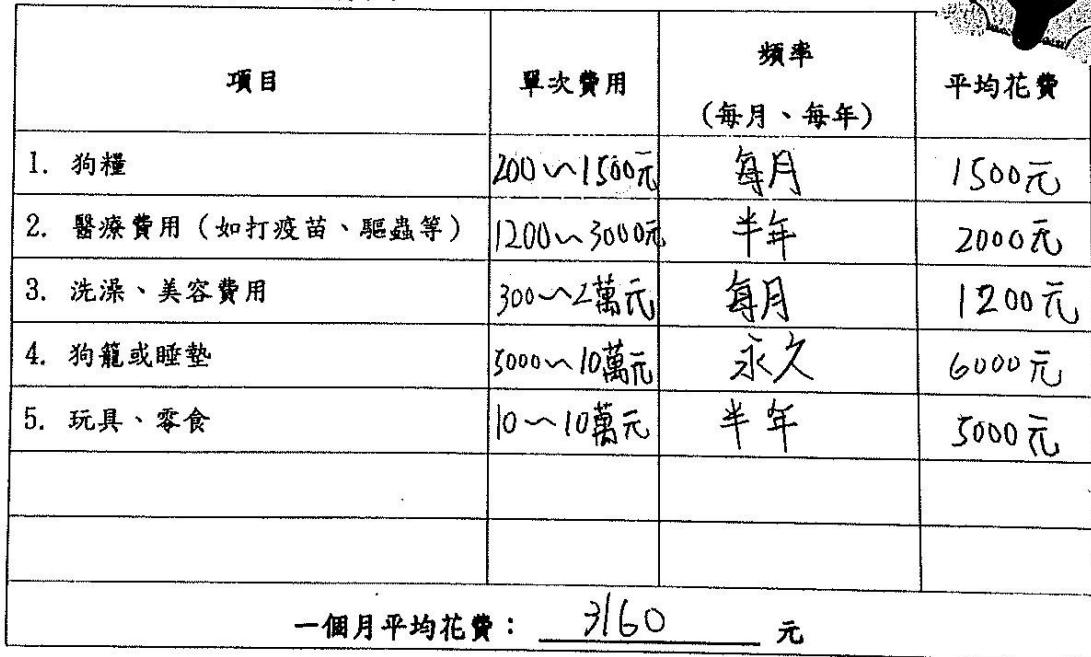 項目 單次費用 頻率 平均花費
(每月、每年)
1. 狗糧 200~1500元 每月 1500元
2. 醫療費用(如打疫苗、驅蟲等) 1200~3000元 半年 2000元
3. 洗澡、美容費用 300~2萬元 每月 1200元
4. 狗籠或睡墊 5000~10萬元 永久 6000元
5. 玩具、零食 10~10萬元 半年 5000元
一個月平均花費: 3160 元